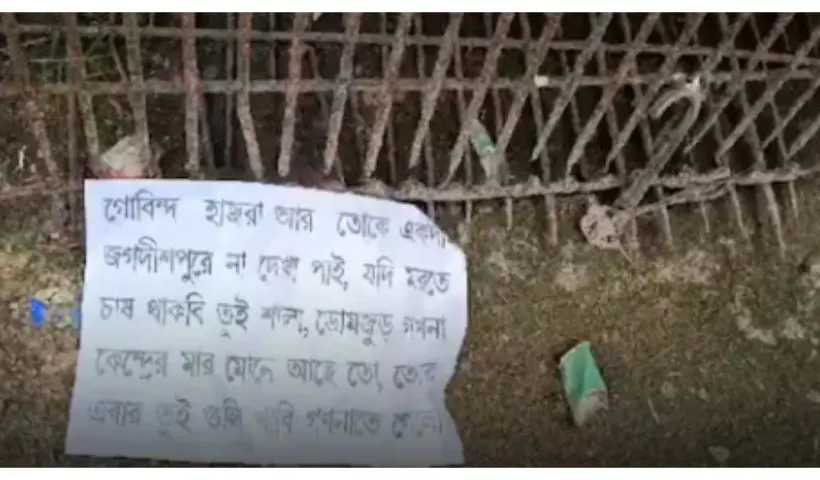 গোবিন্দ হাজরা আর তোকে একদম
জগদীশপুরে না দেখা পাই, যদি মরতে
চাষ থাকবি তুই শালা, ডোমজুড় গণনা
কেন্দ্রের মার মোনে আছে তো, তোর
এবার তুই গুলি খাবি গণনাতে গেলে